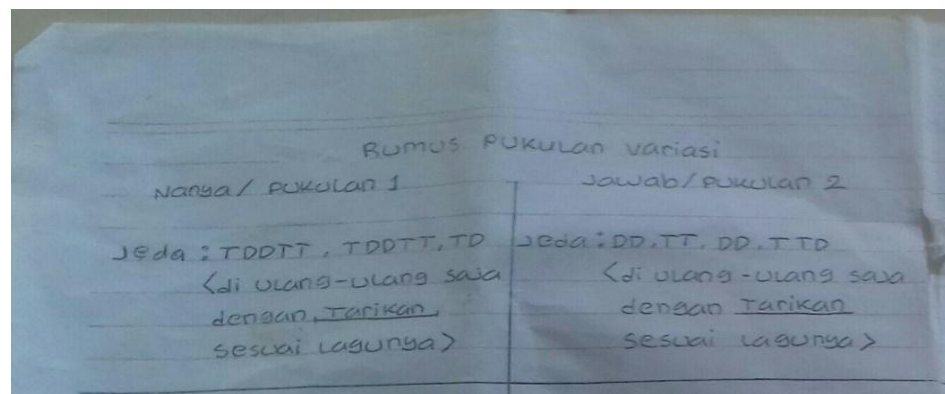 Rumus Pukulan Variasi
Nanya / Pukulan 1
Jeda : TDDTT, TDDTT, TD
<di ulang-ulang saja
dengan Tarikan
sesuai lagunya>
Jawab / Pukulan 2
Jeda : DD, TT, DD, TTD
<di ulang-ulang saja
dengan Tarikan
sesuai lagunya>